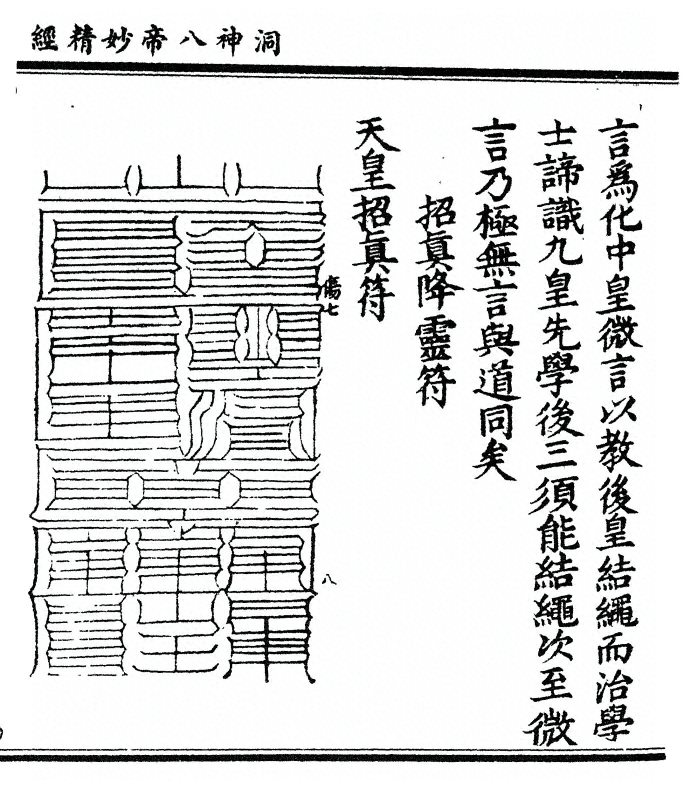 洞神八帝妙精經
言為化中皇微言以教後皇結繩而治學
士諦識九皇先學後三須能結繩次至微
言乃極無言與道同矣
招真降靈符
天皇招真符
傷七
八